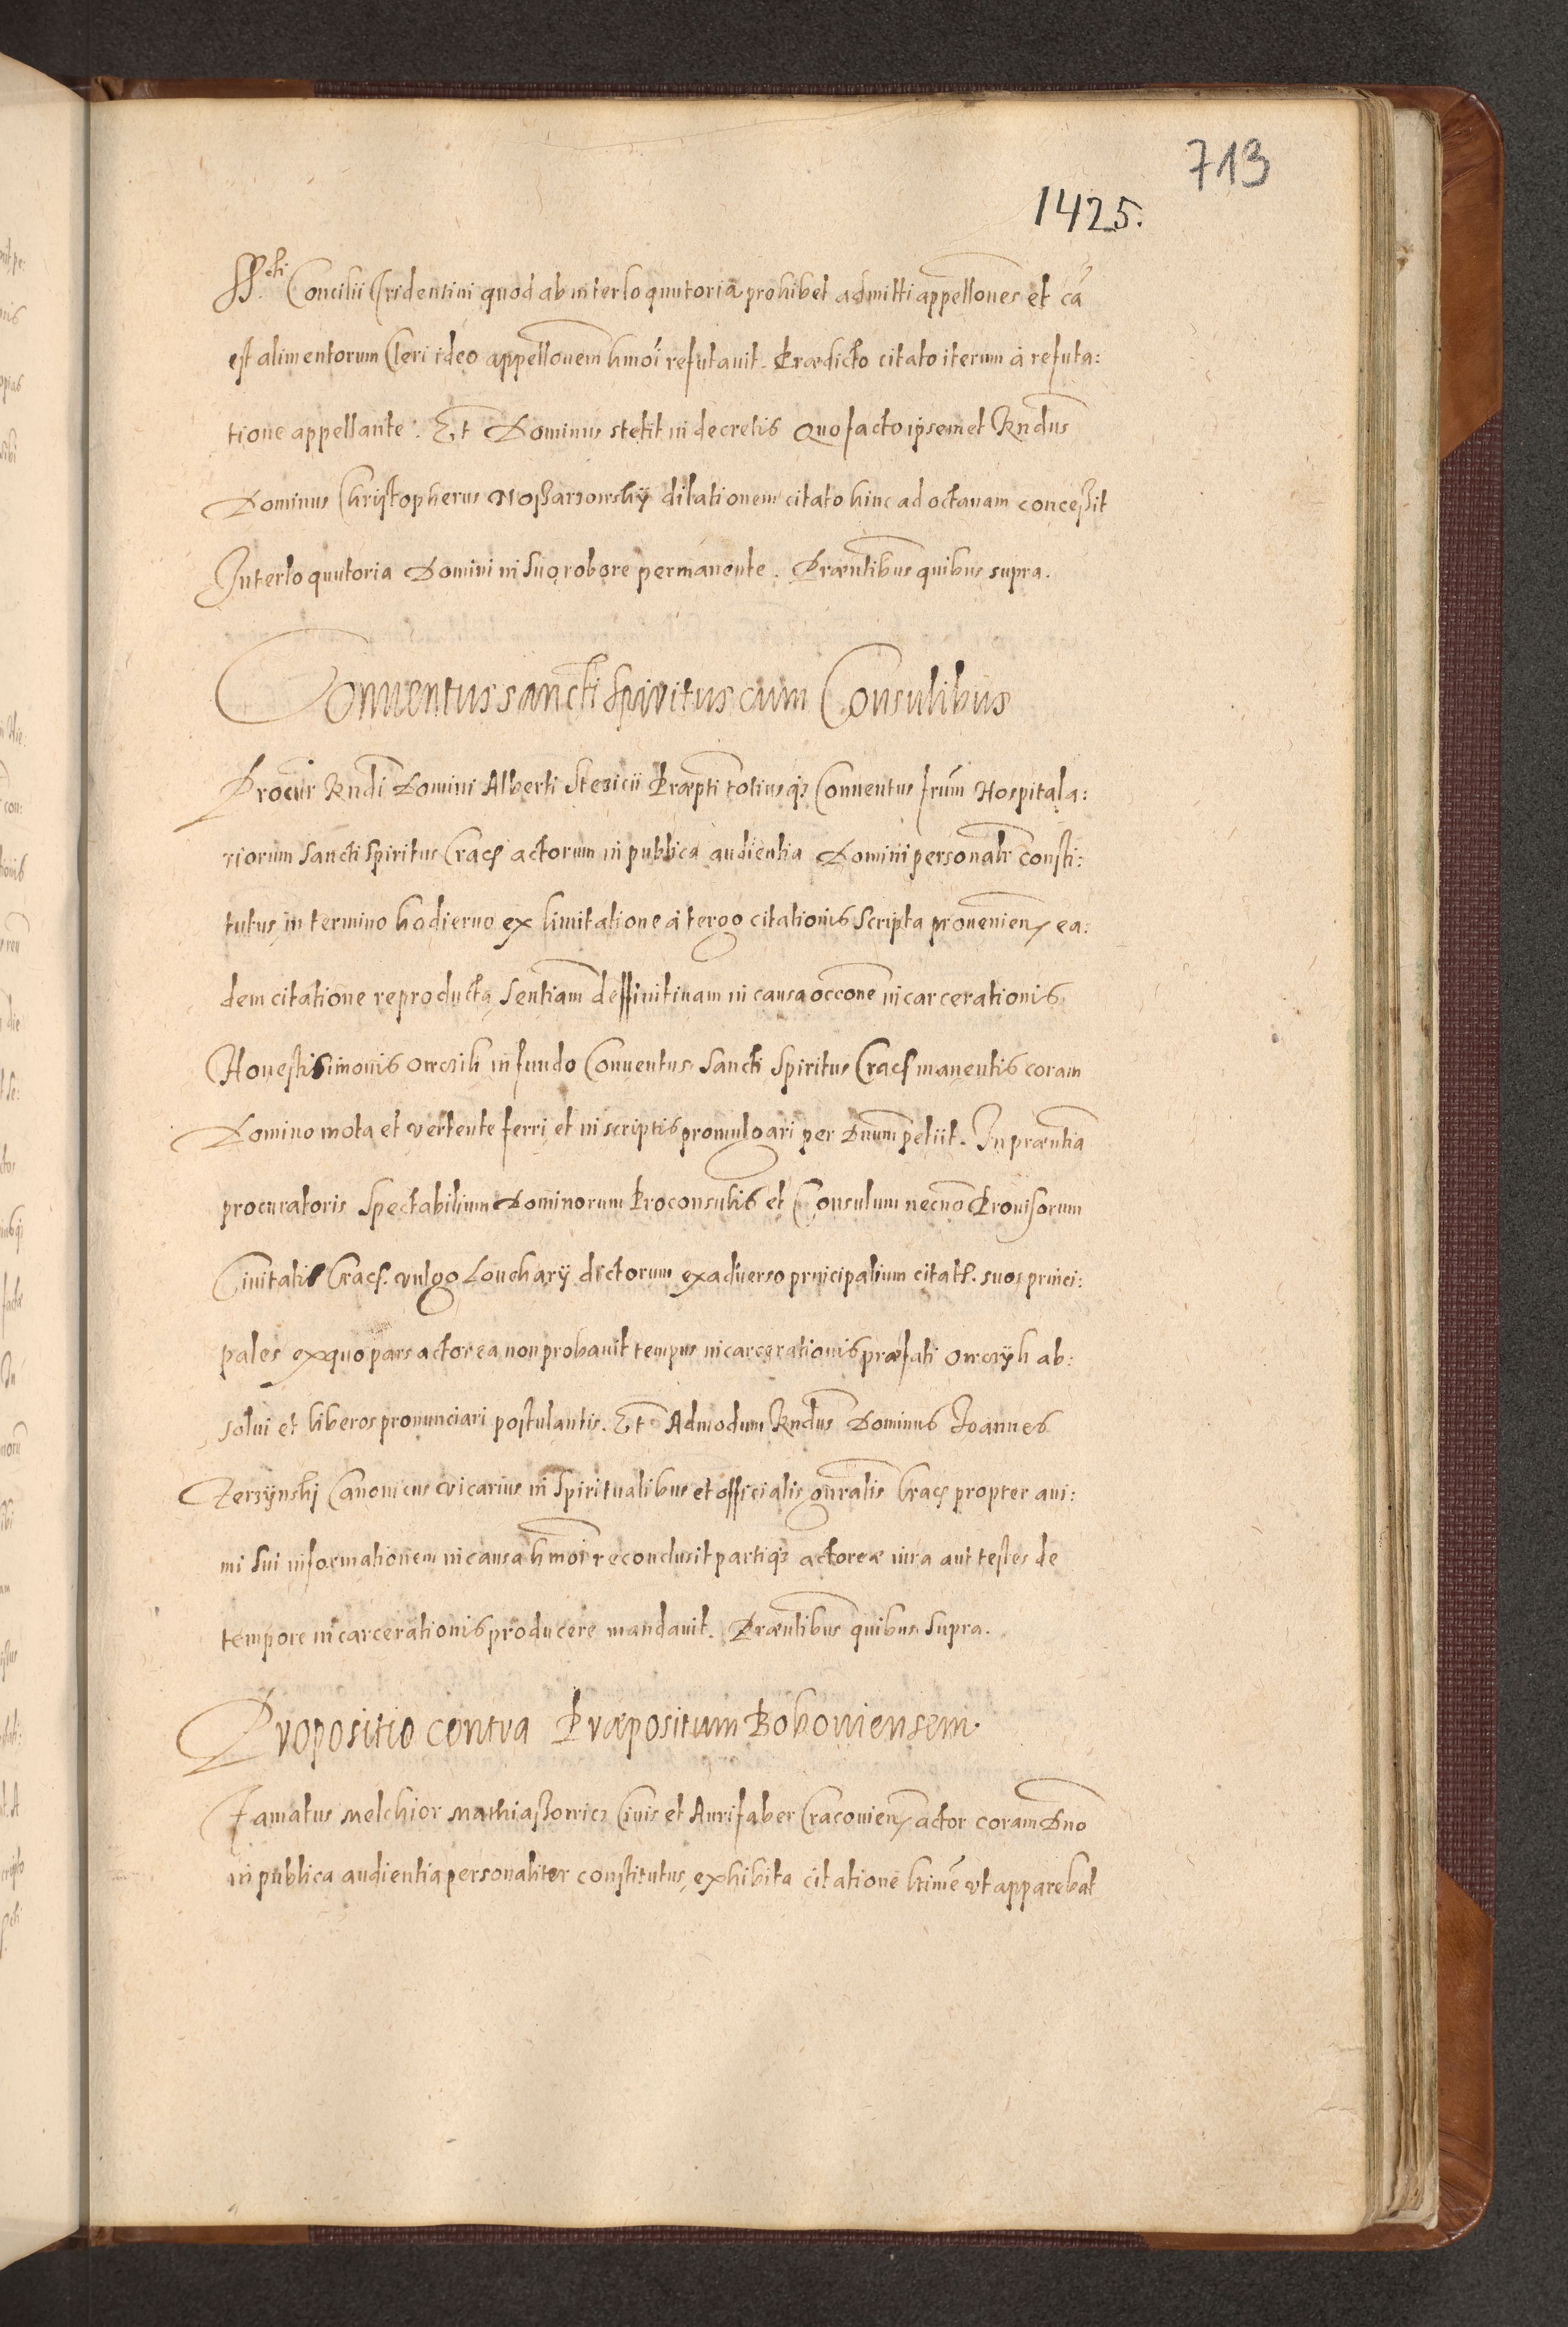 713
1425.
SS.cti Concilii Tridentini quod ab interloquutoria prohibet admitti appellones et cā
est alimentorum Cleri ideo appellonem hmoi refutauit. Prædicto citato iterum à refuta:
tione appellante. Et Dominus stetit in decretis Quo facto ipsemet Rndus
Dominus Christophorus Noßarzowsky dilationem citato hinc ad octauam conceßit
Interloquutoria Domini in suo robore permanente. Præntibus quibus supra.
Conuentus sancti Spiritus cum Consulibus
Procur Rndi Domini Alberti Præpti totiusq3 Conuentus frum Hospitala:
riorum Sancti Spiritus Crac actorum in publica audientia Domini personalr consti:
tutus in termino hodierno ex limitatione à tergo citationis scripta prouenien ea:
dem citatione reproducta sentiam deffinitiuam in causa occone incarcerationis
Honesti Simonis Owczik in fundo Conuentus Sancti Spiritus Crac manentis coram
Domino mota et vertente ferri et in scriptis promulgari per Dnum petiit. In præntia
procuratoris Spectabilium Dominorum Proconsulis et Consulum necno Prouisorum
Ciuitatis Crac. vulgo Lonchary dictorum ex aduerso principalium citat. suos princi:
pales ex quo pars actorea non probauit tempus incarcerationis præfati Owczyk ab:
solui et liberos pronunciari postulantis. Et Admodum Rndus Dominus Joannes
Zerzynskj Canonicus vicarius in Spiritualibus et officialis gnralis Crac propter ani:
mi sui informationem in causa hmoi reconclusit partiq3 actoreæ iura aut testes de
tempore incarcerationis producere mandauit. Præntibus quibus supra.
Propositio contra Præpositum Bokouiensem
Famatus Melchior Mathiaßowicz Ciuis et Aurifaber Cracouien actor coram Dno
in publica audientia personaliter constitutus, exhibita citatione ltime vt apparebat